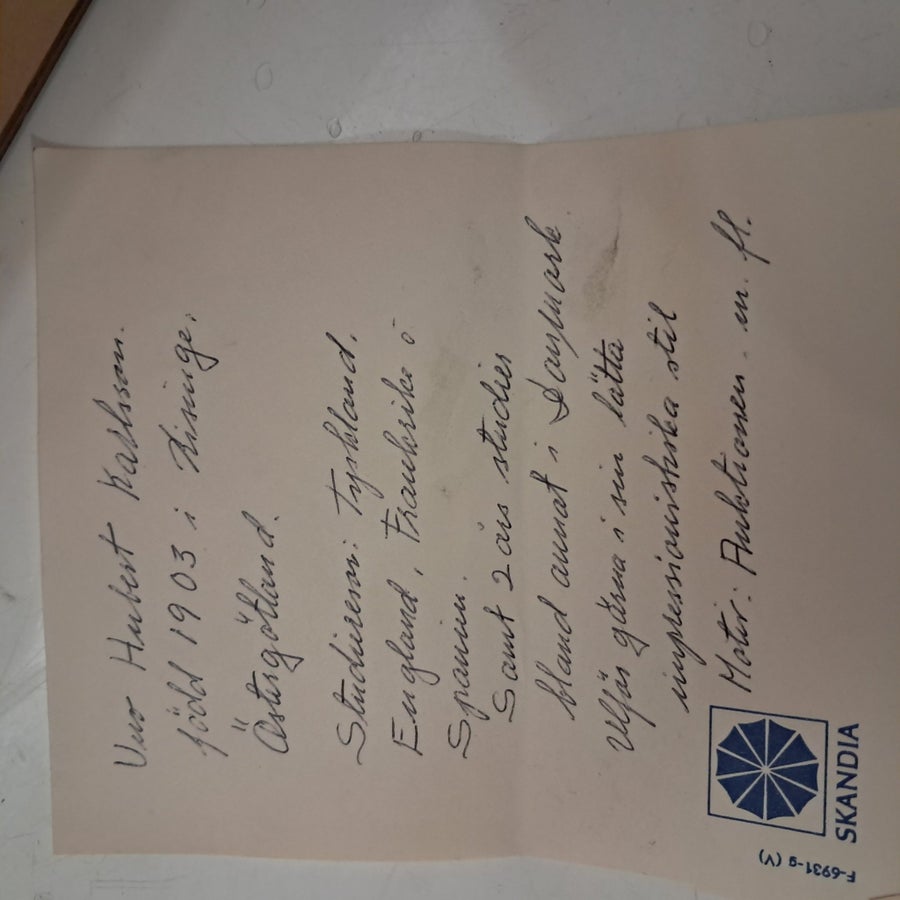 Uno Hubert Karlsson.
född 1903 i Risinge.
Östergötland.
Studieresor: Tyskland.
England, Frankrike o
Spanien.
Samt 2 års studier
bland annat i Danmark.
Utförs gärna i sin lätta
impressionistiska stil
Motiv: Auktionen. m. fl.
SKANDIA
F-6931-g (V)